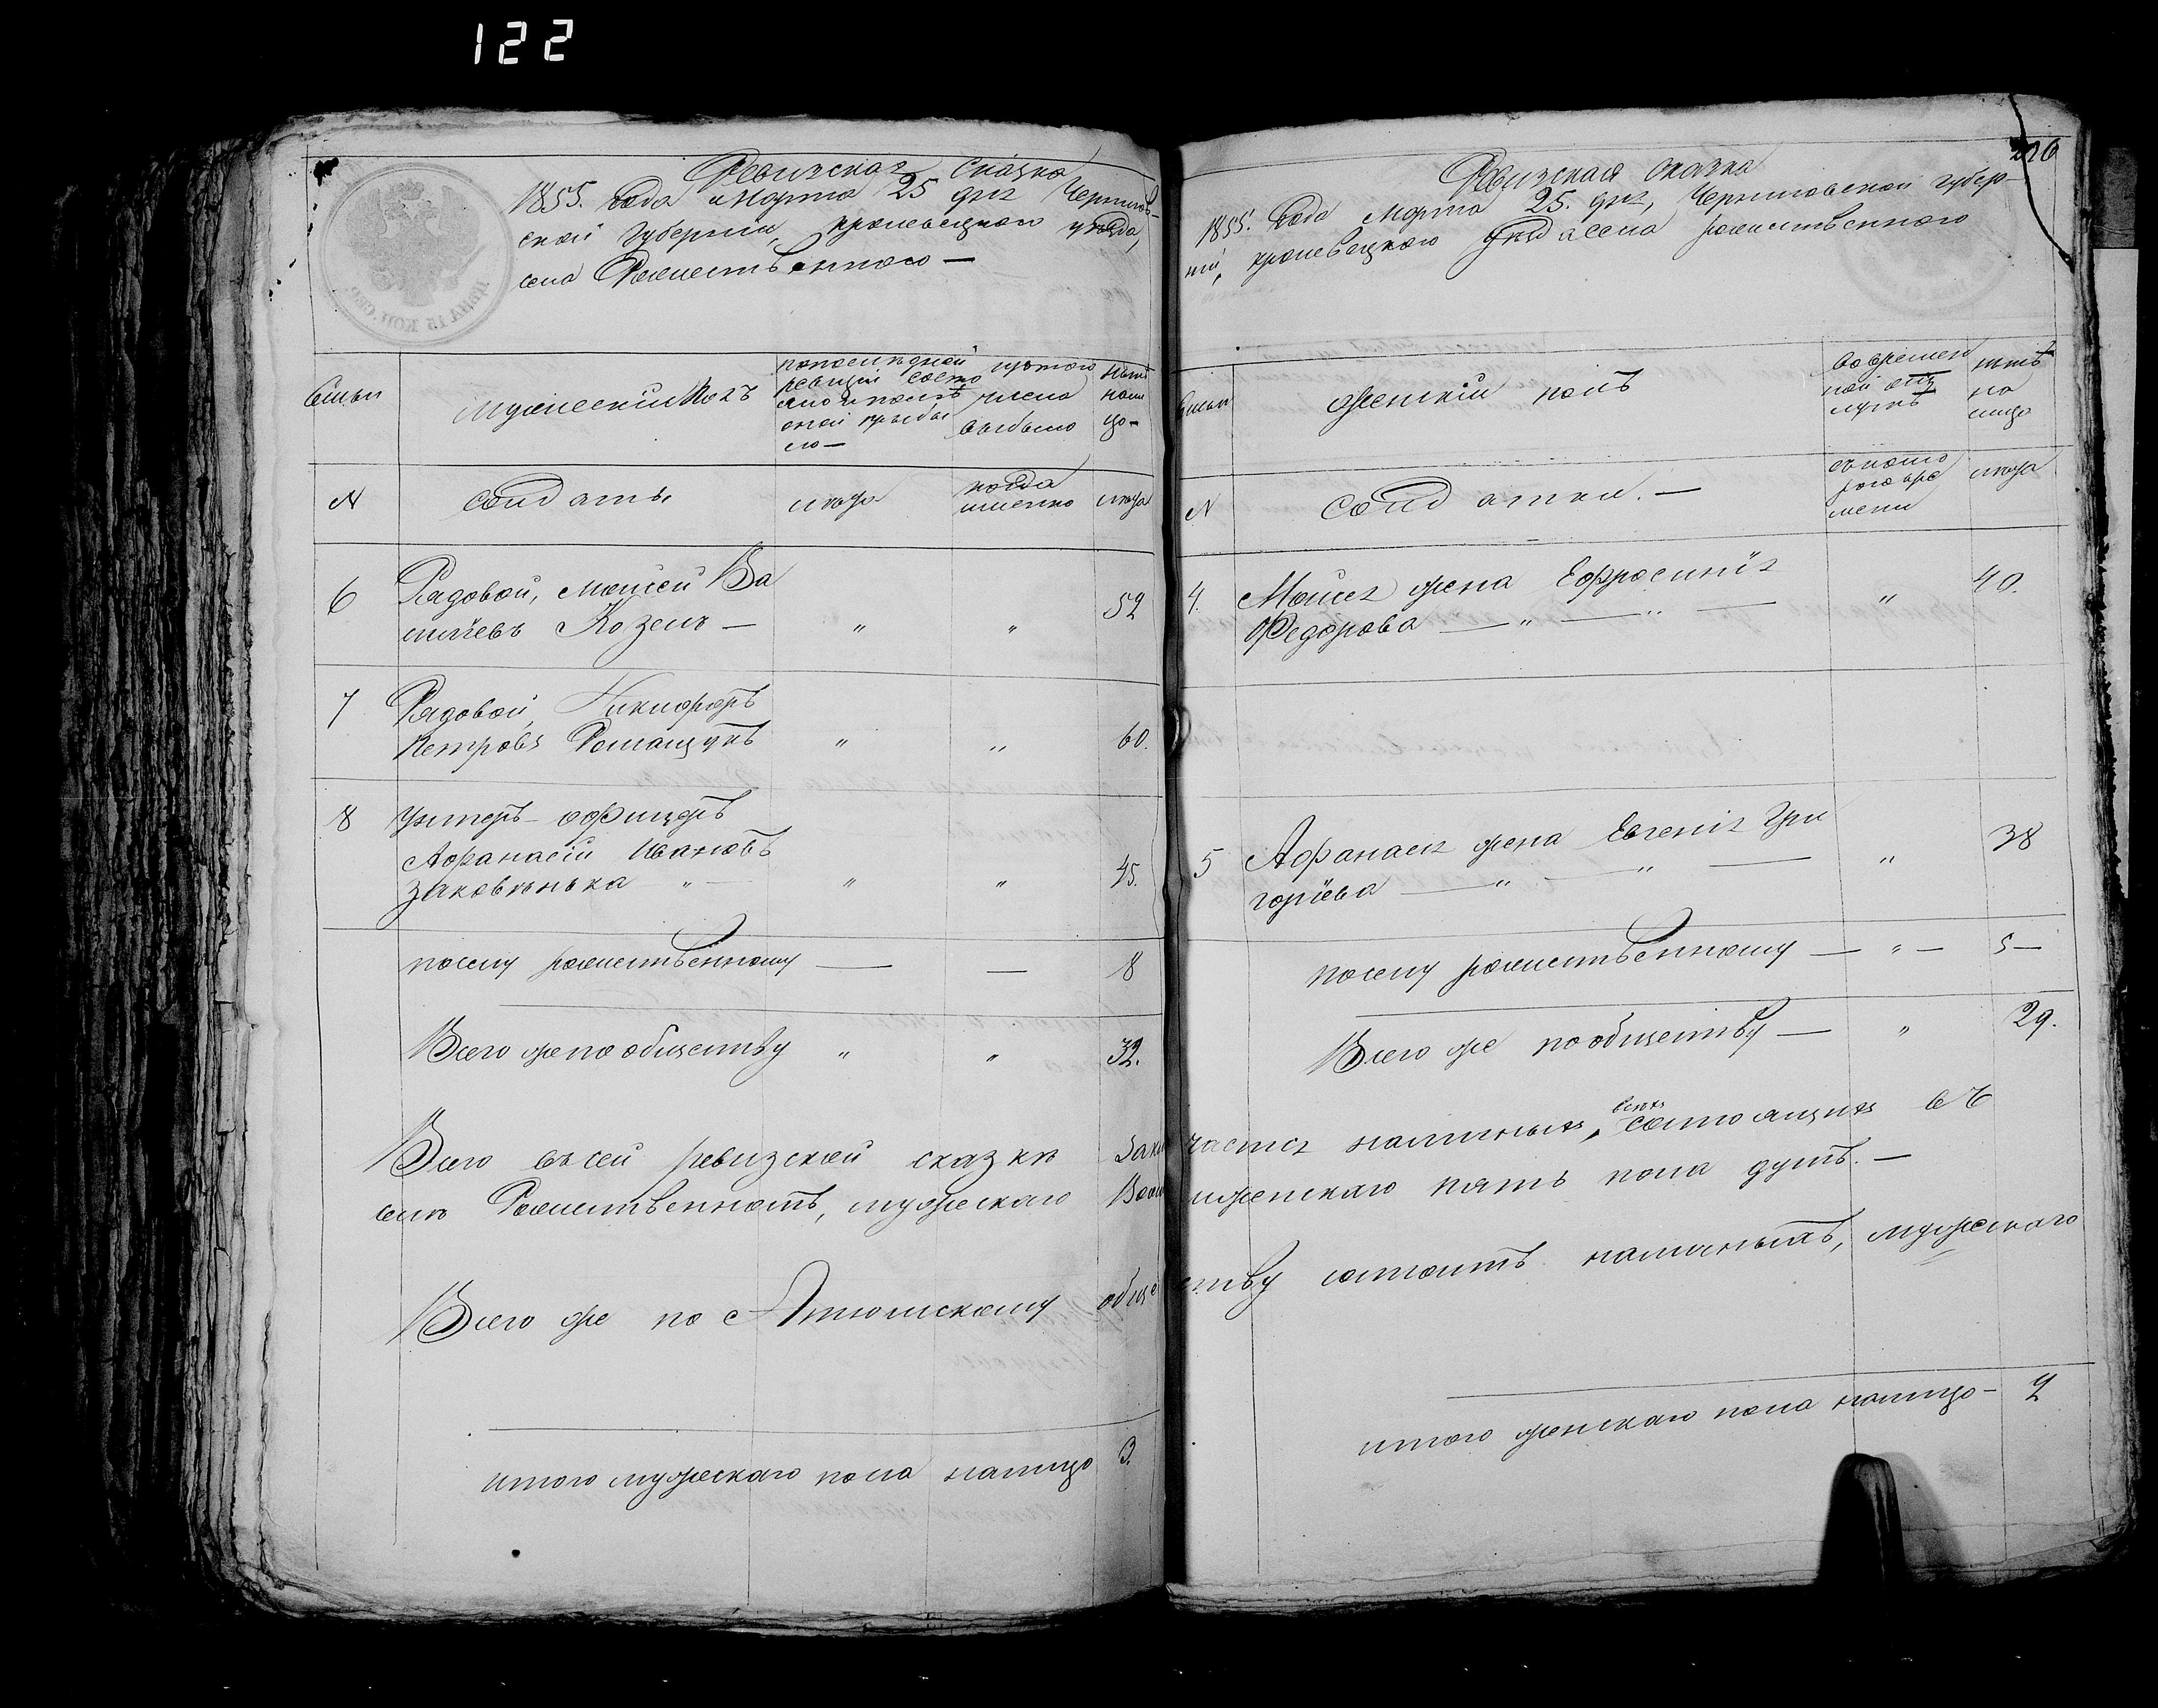 122
Ревизская Сказка
1855. Года Марта 25 дня Чернигов-
ской Губернии, кролевецкого уезда,
села Рожественного —
ЦЕНА 15 КОП. СЕР.
Семьи
Мужеский Полъ
попоследней
ревизии состо
ояло и после
оной прибы
ло —
изтого
числа
выбыло
ныне
нали
цо —
№
Солдаты
лета
когда
именно
лета
6
Рядовой, Моисей Ва
силїевъ Козелъ —
"
"
52
7
Рядовой, Никифоръ
Петровъ Ромащукъ
"
"
60.
8
Унтеръ-офицеръ
Афанасїй Ивановъ
Заковенька — " —
"
"
45.
поселу рожественному — — 8
Всего же по обществу " " 32.
Всего въсей ревизской сказке Заклю
селе Рожественномъ, мужескаго Восемь
Всего же по Атюшскому обще
итого мужескаго пола налицо 3.
226
Ревизская сказка
1855. Года Марта 25. дня, Черниговской губер-
нїи, кролевецкого уезда села рожественного
Семьи
женскїй полъ
Вовремен
ной отлу
чкѣ
ныне
на
лицо
№
Солдатки. —
съкото
рого вре
мени
лета
4.
Моисея жена Ефросинїя
Федорова — " — " —
"
40.
5
Афанасія жена Евгенія Гри
горїева — " — " —
"
38
поселу рожественному — " — 5 —
Всего же пообществу — " 29.
чается наличныхъ, всехъ состоящихъ въ
иженскаго пять пола душъ. —
ству состоитъ наличныхъ, мужескаго
итого женскаго пола налицо — 2